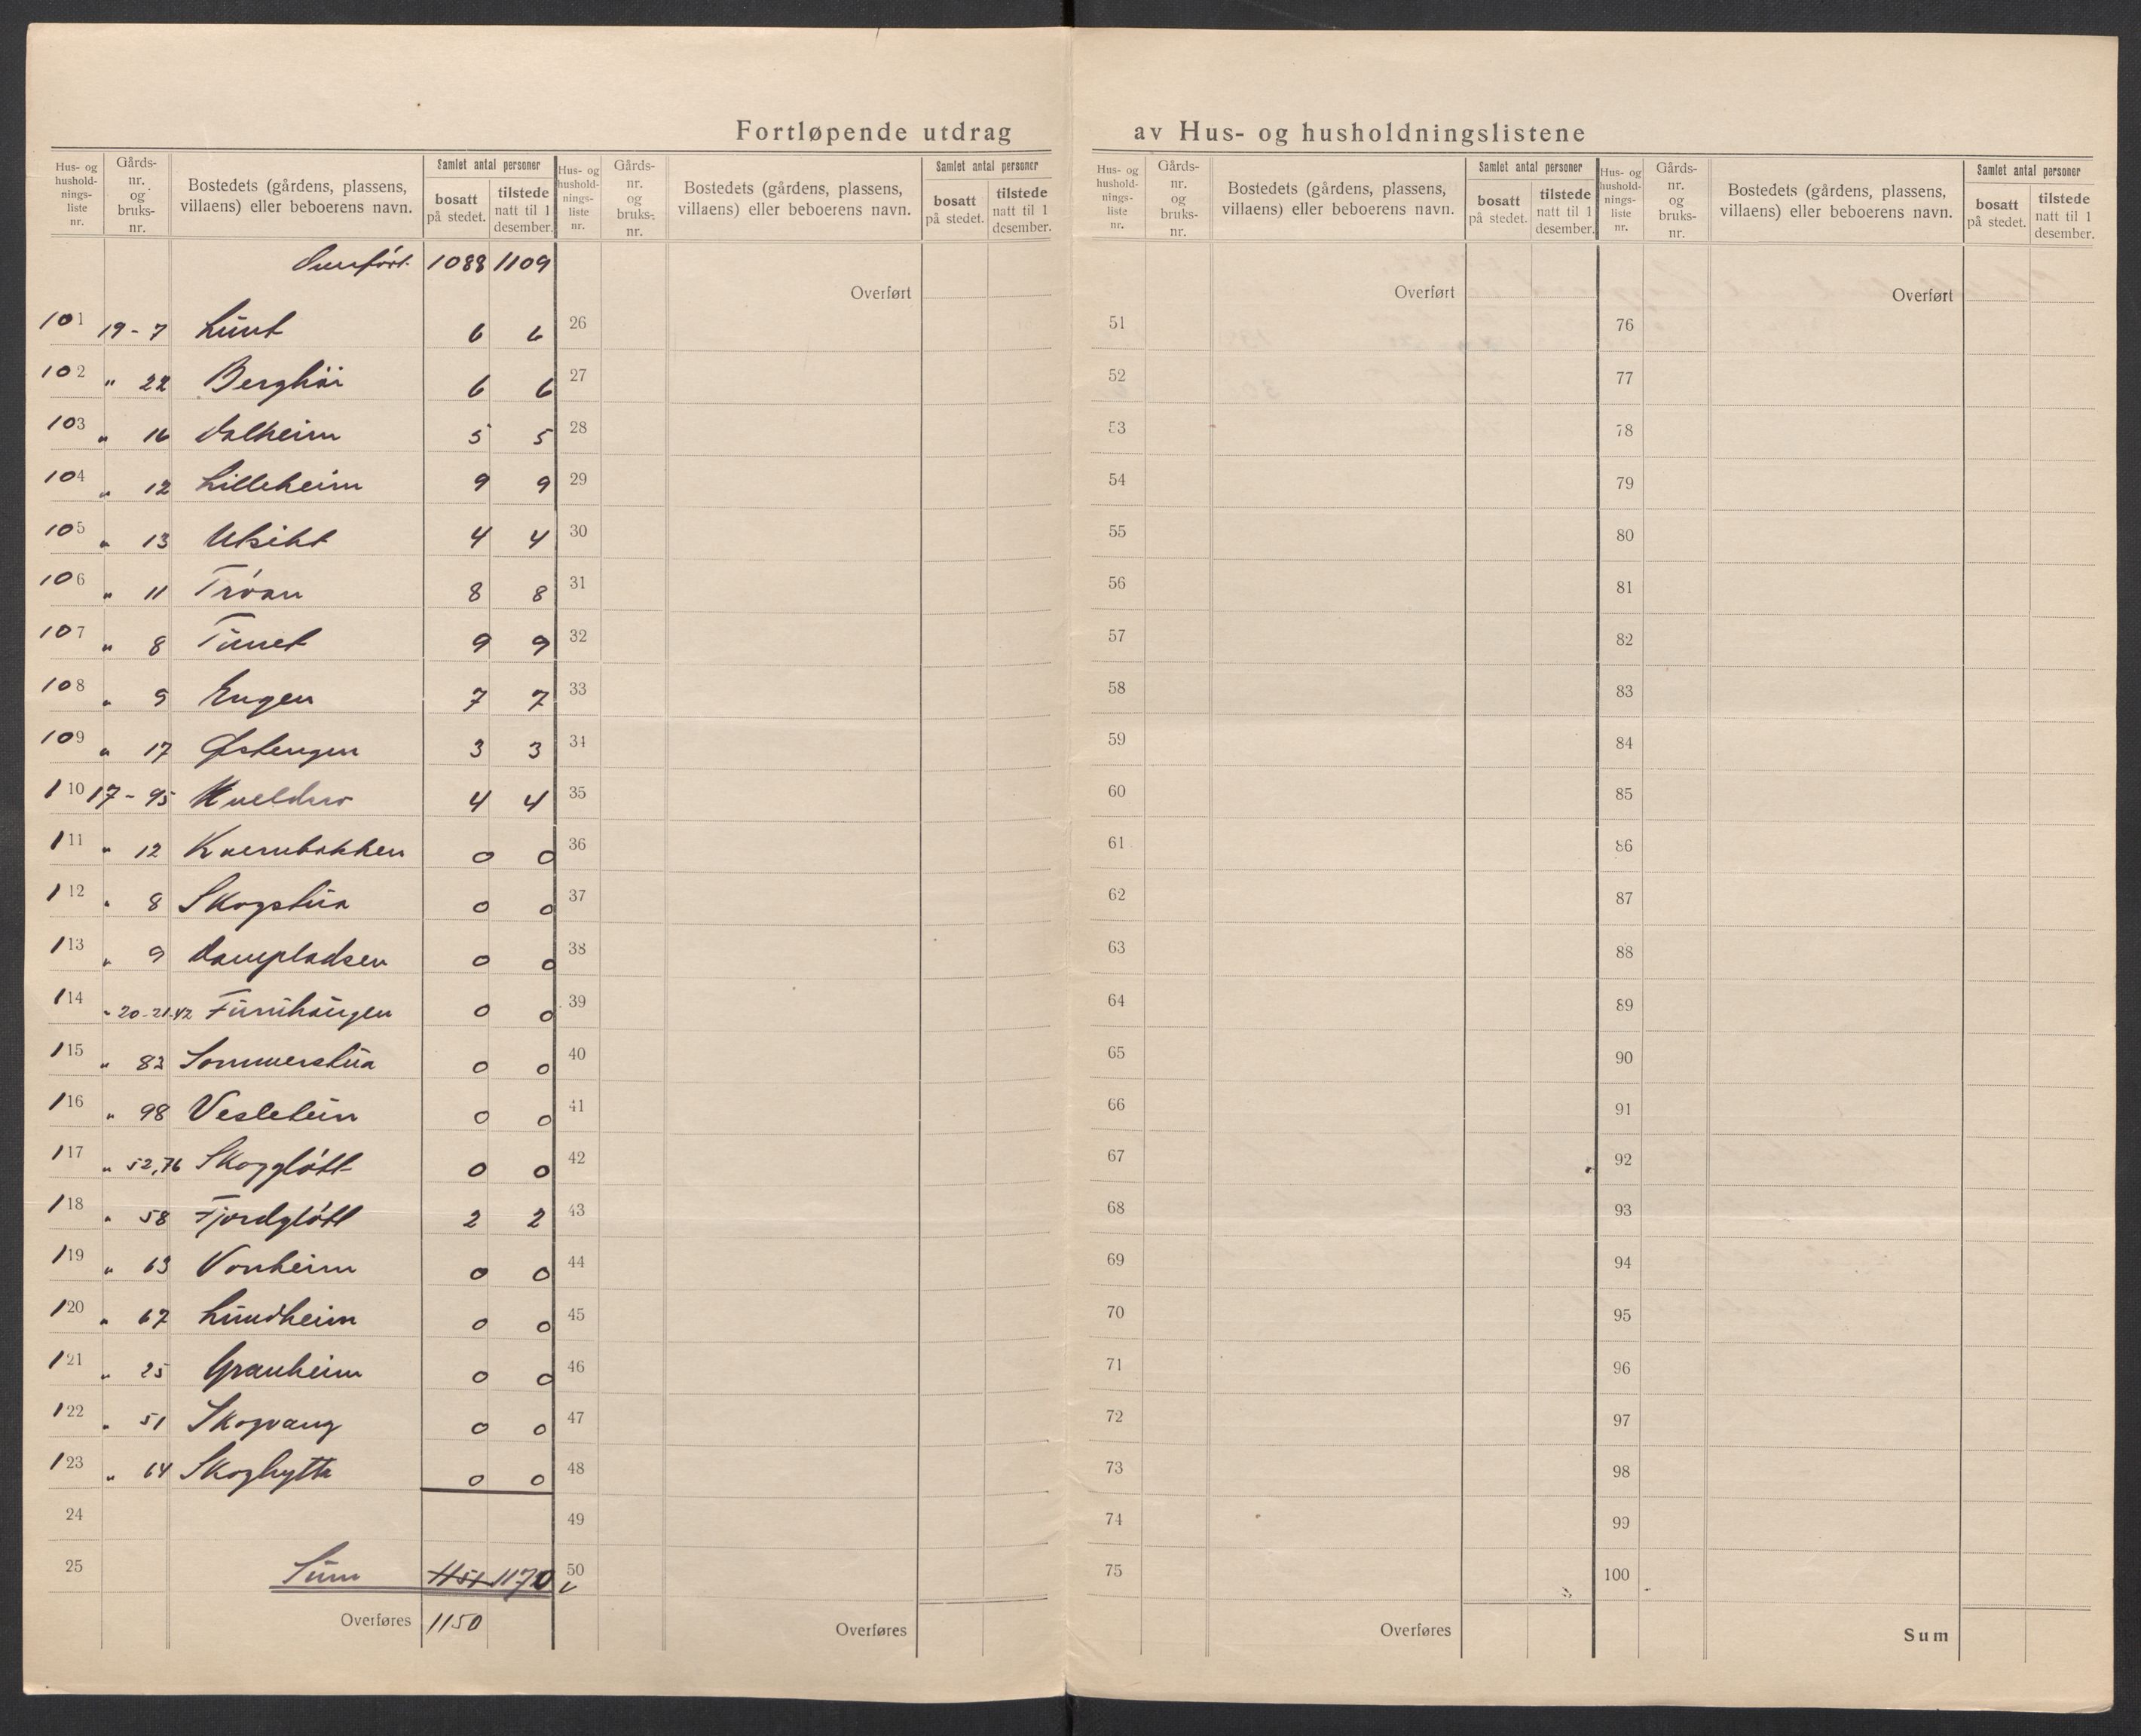 Fortløpende utdrag av Hus- og husholdningslistene
Hus- og husholdnings-liste nr. | Gårds-nr. og bruks-nr. | Bostedets (gårdens, plassens, villaens) eller beboerens navn. | Samlet antal personer | bosatt på stedet. | tilstede natt til 1 desember.
Hus- og husholdnings-liste nr. | Gårds-nr. og bruks-nr. | Bostedets (gårdens, plassens, villaens) eller beboerens navn. | Samlet antal personer | bosatt på stedet. | tilstede natt til 1 desember.
Hus- og husholdnings-liste nr. | Gårds-nr. og bruks-nr. | Bostedets (gårdens, plassens, villaens) eller beboerens navn. | Samlet antal personer | bosatt på stedet. | tilstede natt til 1 desember.
Hus- og husholdnings-liste nr. | Gårds-nr. og bruks-nr. | Bostedets (gårdens, plassens, villaens) eller beboerens navn. | Samlet antal personer | bosatt på stedet. | tilstede natt til 1 desember.
1088 1109
Overført Overført Overført
101 19-7 Lunt 6 6 26 51 76
102 " 22 Berghøi 6 6 27 52 77
103 " 16 Dalheim 5 5 28 53 78
104 " 12 Lilleheim 9 9 29 54 79
105 " 13 Utsikt 4 4 30 55 80
106 " 11 Trøan 8 8 31 56 81
107 " 8 Tunet 9 9 32 57 82
108 " 9 Engen 7 7 33 58 83
109 " 17 Østengen 3 3 34 59 84
110 17-95 Kveldsro 4 4 35 60 85
111 " 12 Kvernbakken 0 0 36 61 86
112 " 8 Skogstua 0 0 37 62 87
113 " 9 Dampladsen 0 0 38 63 88
114 " 20-21-42 Furuhaugen 0 0 39 64 89
115 " 83 Sommerstua 0 0 40 65 90
116 " 98 Vesletun 0 0 41 66 91
117 " 52,76 Skoggløtt 0 0 42 67 92
118 " 58 Fjordgløtt 2 2 43 68 93
119 " 63 Vonheim 0 0 44 69 94
120 " 67 Lundheim 0 0 45 70 95
121 " 25 Granheim 0 0 46 71 96
122 " 51 Skogvang 0 0 47 72 97
123 " 64 Skoghytta 0 0 48 73 98
24 49 74 99
25 Sum 1151 1170 50 75 100
Overføres 1150 Overføres Overføres Sum